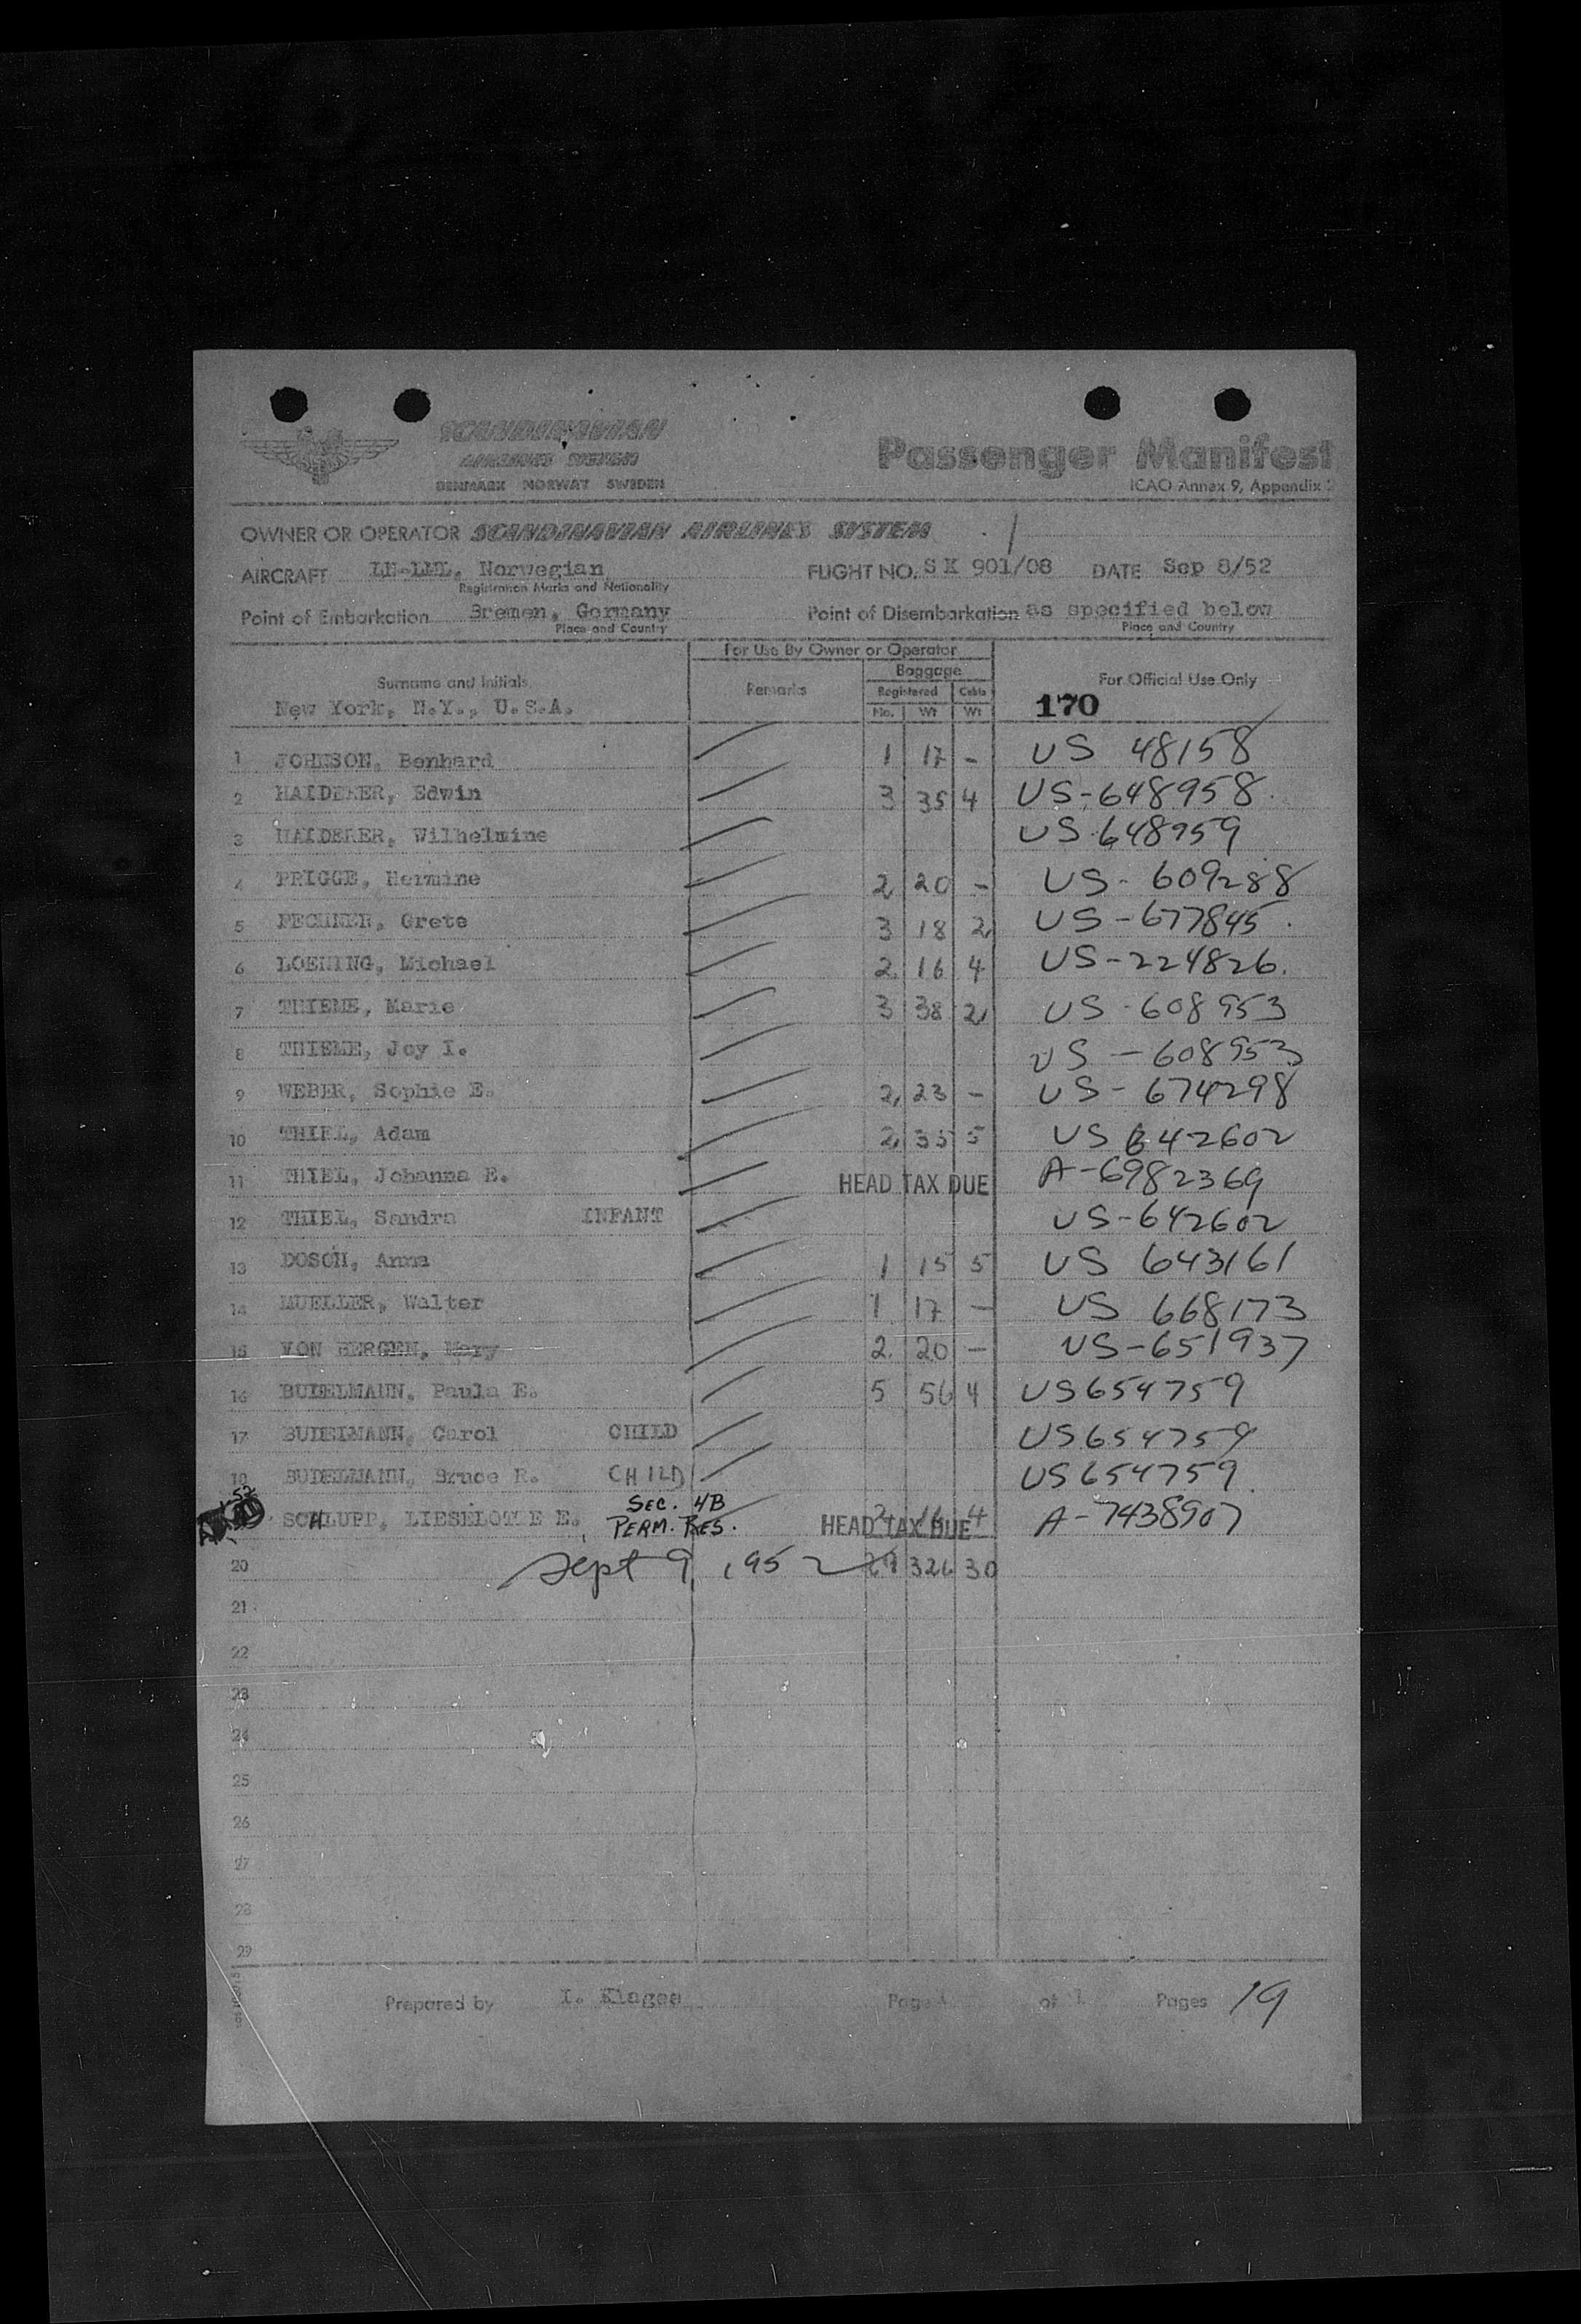 SCANDINAVIAN
AIRLINES SYSTEM
DENMARK NORWAY SWEDEN
Passenger Manifest
ICAO Annex 9, Appendix 2
OWNER OR OPERATOR SCANDINAVIAN AIRLINES SYSTEM
AIRCRAFT LN-LML, Norwegian FLIGHT NO. SK 901/08 DATE Sep 8/52
Registration Marks and Nationality
Point of Embarkation Bremen, Germany Point of Disembarkation as specified below
Place and Country Place and Country
For Use By Owner or Operator
Surname and Initials Remarks Baggage For Official Use Only
Registered Cabin
New York, N.Y., U.S.A. No. Wt Wt 170
1 JOHNSON, Benhard 1 17 - US 48158
2 HAIDERER, Edwin 3 35 4 US-648958.
3 HAIDERER, Wilhelmine US-648959
4 PRIGGE, Hermine 2 20 - US- 609288
5 PECHNER, Grete 3 18 2 US-677845.
6 LOENING, Michael 2 16 4 US-224826.
7 THIEME, Marie 3 38 2 US-608953
8 THIEME, Joy I. US-608953
9 WEBER, Sophie E. 2 23 - US-674298
10 THIEL, Adam 2 35 5 US 642602
11 THIEL, Johanna E. HEAD TAX DUE A-6982369
12 THIEL, Sandra INFANT US-642602
13 DOSCH, Anna 1 15 5 US 643161
14 MUELLER, Walter 1 17 - US 668173
15 VON BERGEN, Mary 2 20 - US-651937
16 BUDELMANN, Paula E. 5 56 4 US654759
17 BUDELMANN, Carol CHILD US654759
18 BUDELMANN, Bruce R. CHILD US654759
SEC. 4B
SCHLUPP, LIESELOTTE E. PERM. RES. HEAD TAX DUE 2 16 4 A-7438907
20 Sept 9, 1952 29 326 30
21
22
23
24
25
26
27
28
29
Prepared by I. Klages Page 1 of 1 Pages 19